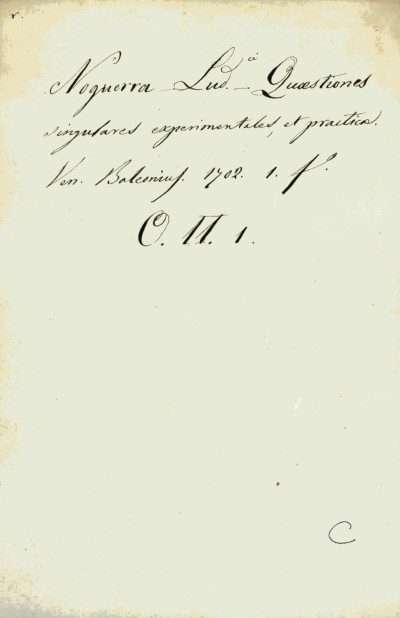 Noguerra – Lud.ci – Quæstiones
singulares experimentales, et practicæ.
Ven. Balleonius. 1702. 1. fº.
O. II. 1.
C